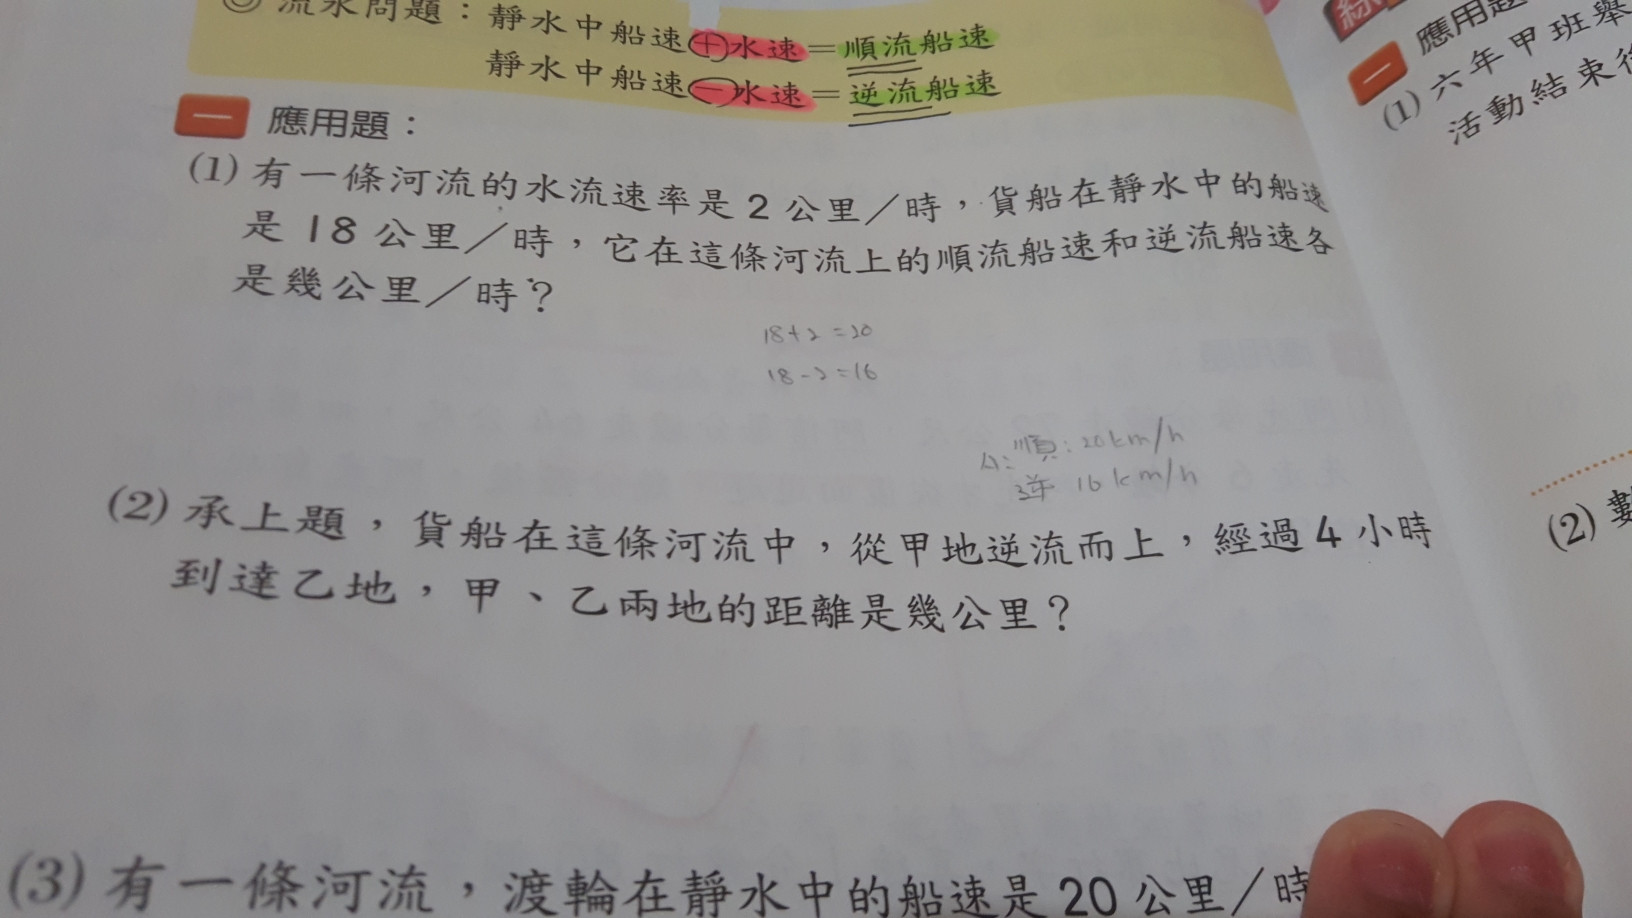 流水問題：靜水中船速＋水速＝順流船速
靜水中船速－水速＝逆流船速
一 應用題：
(1) 有一條河流的水流速率是 2 公里／時，貨船在靜水中的船速
是 18 公里／時，它在這條河流上的順流船速和逆流船速各
是幾公里／時？
18+2=20
18-2=16
A: 順: 20km/h
逆 16km/h
(2) 承上題，貨船在這條河流中，從甲地逆流而上，經過 4 小時
到達乙地，甲、乙兩地的距離是幾公里？
(3) 有一條河流，渡輪在靜水中的船速是 20 公里／時
一 應用題
(1) 六年甲班舉
活動結束後
(2) 數